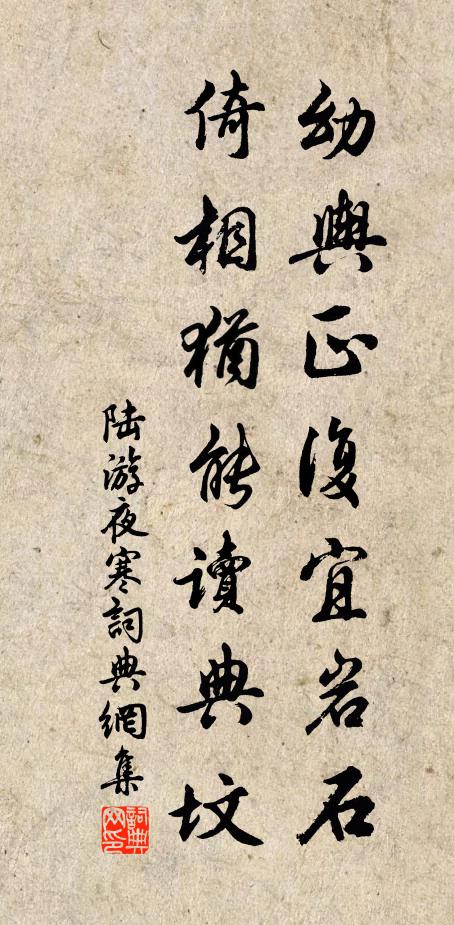 幼輿正復宜岩石
倚相猶能讀典坟
陆游夜寒詞典網集
詞典網印